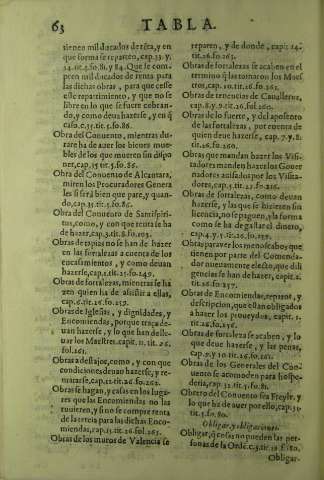 63 TABLA.
tienen mil ducados de rẽta, y en
que forma se reparten, cap.33. y
34.tit.5.fo.81. y 84. Que se com-
pren mil ducados de renta para
las dichas obras, para que cesse
este repartimiento, y que no se
libre en lo que se fuere cobran-
do, y como deuas hazerse, y en q̃
caso. c.35.tit.5.fo.86.
Obra del Conuento, mientras du-
rare ha de auer los bienes mue-
bles de los que mueren sin dispo
ner, cap.35.tit.5.fo.86.
Obra del Conuento de Alcantara,
miren los Procuradores Genera
les si serà bien que pare, y quan-
do, cap.35.tit.5.fo.86.
Obra del Conuento de Santispiri-
tus, como, y con que renta se ha
de hazer, cap.3.tit.8.fo.103.
Obras de tapias no se han de hazer
en las fortalezas a cuenta de los
encasamientos, y como deuan
hazerse, cap.1.tit.25.fo.249.
Obras de fortalezas, mientras se ha
zen quien ha de assistir a ellas,
cap.6.tit.26.fo.259.
Obras de Iglesias, y dignidades, y
Encomiendas, porque traça de-
uan hazerse, y lo que han de lle-
uar los Maestres. capit. tit.26.
fol.261.
Obras a destajos, como, y con que
condiciones deuan hazerse, y re-
matarse, cap.12.tit.26.fo.262.
Obras se hagan, y casas en los luga-
res que las Encomiendas no las
tuuieren, y si no se compre renta
de la tercia para las dichas Enco-
miendas, cap.15.tit.26.fol.263.
Obras de los muros de Valencia se
reparen, y de donde, capit. 14.
tit.26.fo.263.
Obras de fortalezas se acaben en el
termino q̃ las tomaron los Maes
tros, cap.10.tit.26.fo.261.
Obras de tenencias de Caualleros,
cap.8.y 9.tit.26.fol.260.
Obras de lo fuerte, y del aposento
de las fortalezas, por cuenta de
quien deue hazerse, cap.7. y 8.
tit.26.fo.260.
Obras que mandan hazer los Visi-
tadores manden hazer los Gouer
nadores auisados por los Visita-
tores, cap.13.tit.25.fo.256.
Obras de fortalezas, como deuan
hazerse, y las que se hizieren sin
licencia, no se paguen, y la forma
como se ha de gastar el dinero,
cap.4. y 9.tit.26.fo.
Obras para ver los menoscabos que
tienen por parte del Comenda-
dor nueuamente electo, que dili
gencias se han de hazer, capit.2.
tit.26.fo.257.
Obras de Encomiendas, reparos, y
descripcion, que estan obligados
a hazer los proueydos, capit.
tit.26.fo.256.
Obras de fortaleza se acaben, y lo
que deue hazerse, y las penas,
cap.9. y 10.tit.26.fo.261.
Obras de los Generales del Con-
uento se acomoden para hospe-
deria, cap.32.tit.5.fo.81.
Obrero del Conuento sea Freyle, y
lo que ha de auer por ello, cap.31.
tit.5.fo.80.
Obligar, y obligaciones.
Obligar, q̃ cosas no pueden las per-
sonas de la Ordẽ. c.3.tit.19.f.180.
Obligar-